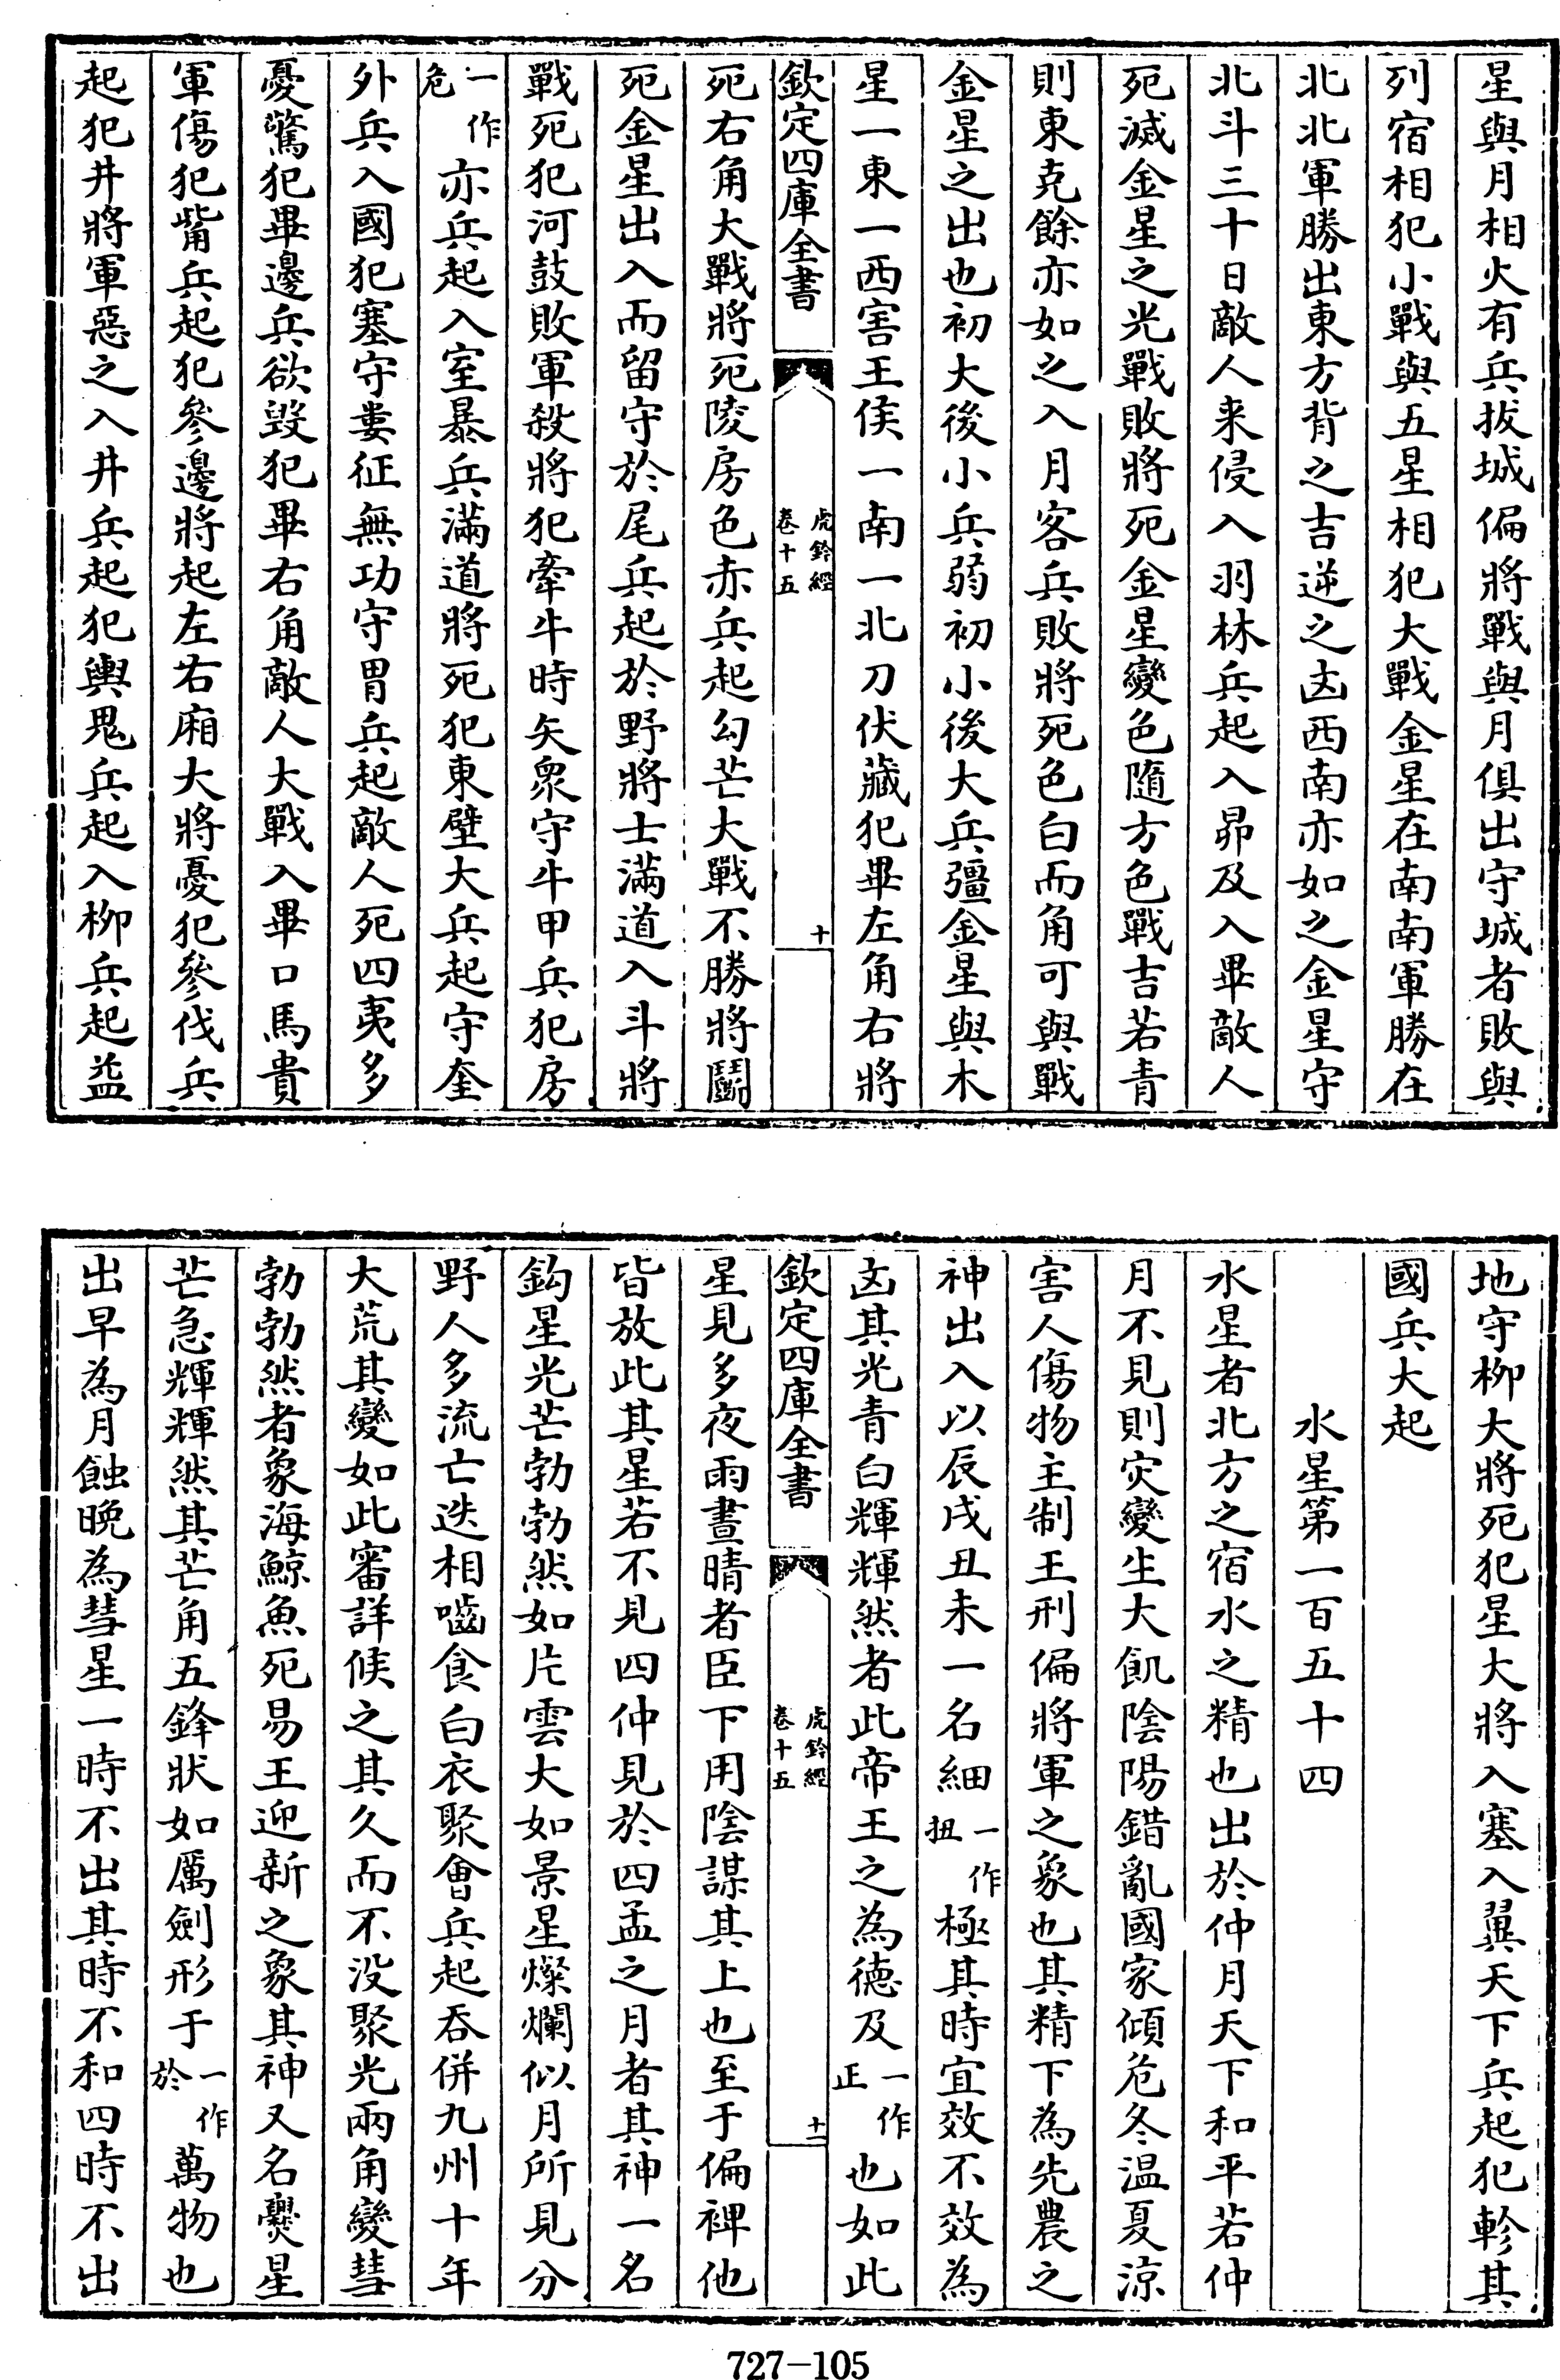 星與月相火有兵拔城偏將戰與月俱出守城者敗與
列宿相犯小戰與五星相犯大戰金星在南南軍勝在
北北軍勝出東方背之吉逆之㐫西南亦如之金星守
北斗三十日敵人来侵入羽林兵起入昴及入畢敵人
死滅金星之光戰敗將死金星變色隨方色戰吉若青
則東克餘亦如之入月客兵敗將死色白而角可與戰
金星之出也初大後小兵弱初小後大兵彊金星與木
星一東一西害王侯一南一北刀伏藏犯畢左角右將
欽定四庫全書
虎鈐經
卷十五
十
死右角大戰將死陵房色赤兵起勾芒大戰不勝將鬭
死金星出入而留守於尾兵起於野將士滿道入斗將
戰死犯河鼓敗軍殺將犯牽牛時矢眾守牛甲兵犯房
一作危亦兵起入室暴兵滿道將死犯東壁大兵起守奎
外兵入國犯塞守婁征無功守胃兵起敵人死四夷多
憂驚犯畢邊兵欲毀犯畢右角敵人大戰入畢口馬貴
軍傷犯觜兵起犯參邊將起左右廂大將憂犯參伐兵
起犯井將軍惡之入井兵起犯輿鬼兵起入柳兵起益
地守柳大將死犯星大將入塞入翼天下兵起犯軫其
國兵大起
水星第一百五十四
水星者北方之宿水之精也出於仲月天下和平若仲
月不見則灾變生大飢陰陽錯亂國家傾危冬温夏涼
害人傷物主制王刑偏將軍之象也其精下為先農之
神出入以辰戌丑未一名細一作扭極其時宜效不效為
㐫其光青白輝輝然者此帝王之為德及一作正也如此
欽定四庫全書
虎鈐經
卷十五
十一
星見多夜雨晝晴者臣下用陰謀其上也至于偏裨他
皆放此其星若不見四仲見於四孟之月者其神一名
鈎星光芒勃勃然如片雲大如景星燦爛似月所見分
野人多流亡迭相嚙食白衣聚會兵起吞併九州十年
大荒其變如此審詳候之其久而不没聚光兩角變彗
勃勃然者象海鯨魚死易王迎新之象其神又名爨星
芒急輝輝然其芒角五鋒狀如厲劍形于一作於萬物也
出早為月蝕晚為彗星一時不出其時不和四時不出
727-105